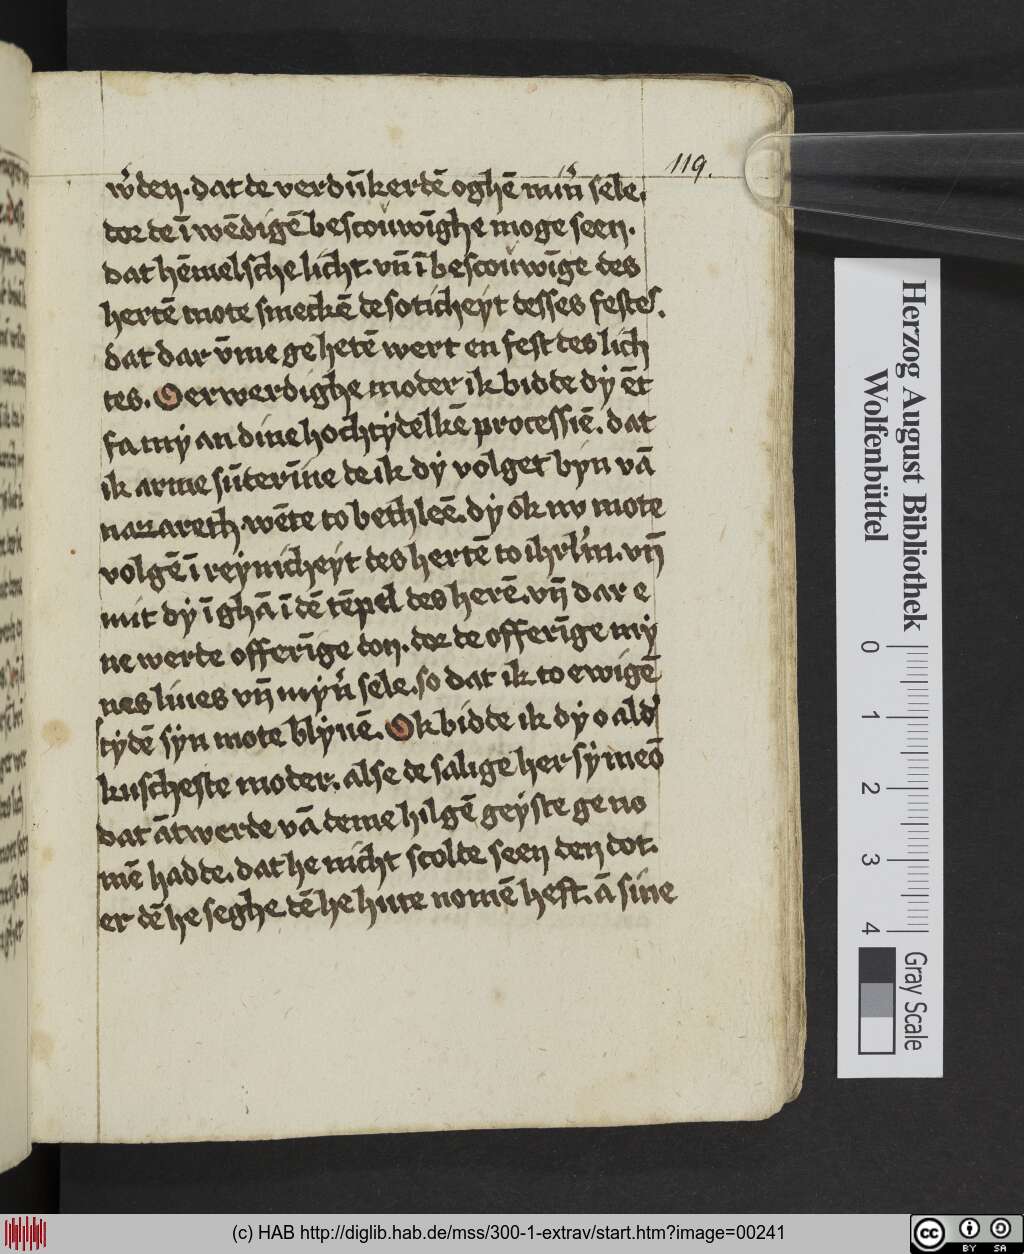 119.
w᷑den. dat de verdūkertē oghē min᷑ sele.
dor de ī wēdigē bescouwīghe moge seen.
dat hēmelsche licht. vn̄ ī bescouwīge des
hertē mote smeckē de soticheyt desses festes.
dat dar v̄me ge hetē wert en fest des lich
tes. Oerwerdighe moder ik bidde dy ēt
fa my an dine hochtydelkē processiē. dat
ik arme sūterīne de ik dy volget byn vā
nazareth wēte to bethleē. dy ok nv mote
volgē ī reynicheyt des hertē to ihrl᷑m. vn̄
mit dy ī ghā ī dē tēpel des herē. vn̄ dar e
ne werde offerīge don. dor de offerīge my
nes liues vn̄ myn᷑ sele. so dat ik to ewigē
tydē syn mote blyuē. Ok bidde ik dy o ald᷑
kuscheste moder. alse de salige her symeō
dat ātwerde vā deme hilgē geyste ge no
mē hadde. dat he nicht scolde seen den dot.
er dē he seghe dē he hute nomē heft. ā sine
Herzog August Bibliothek
Wolfenbüttel
0 1 2 3 4
Gray Scale
(c) HAB http://diglib.hab.de/mss/300-1-extrav/start.htm?image=00241
cc BY SA